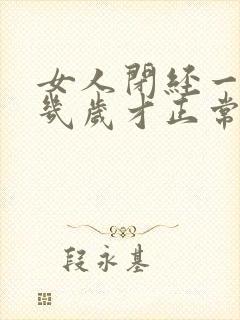 女人閉經一
幾歲才正常
段永基